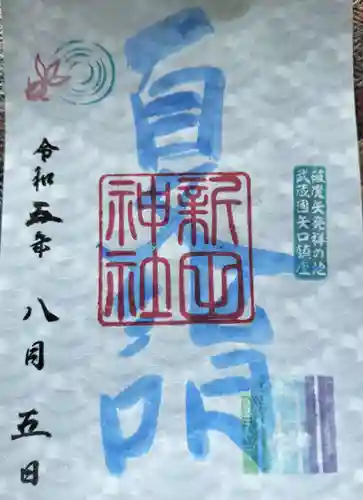 破魔矢発祥の地
武蔵國矢口鎮座
夏詣
新田
神社
令和五年 八月 五日